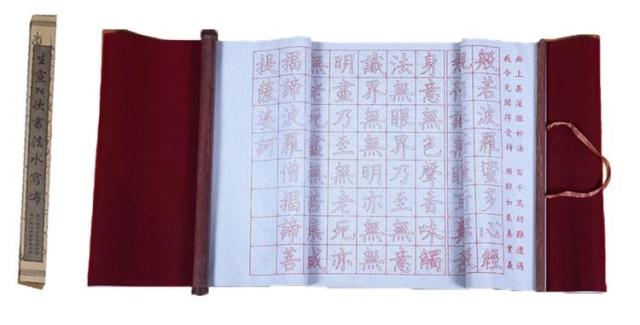 生宣N次書法水寫布
無上甚深微妙法 百千萬劫難遭遇
我今見聞得受持 願解如來真實義
般若波羅蜜多心經
身意無色聲香味觸
法無眼界乃至無意
識界無無明亦無無
明盡乃至無老死亦
無老死盡無苦集滅
揭諦波羅僧揭諦菩
提薩婆訶